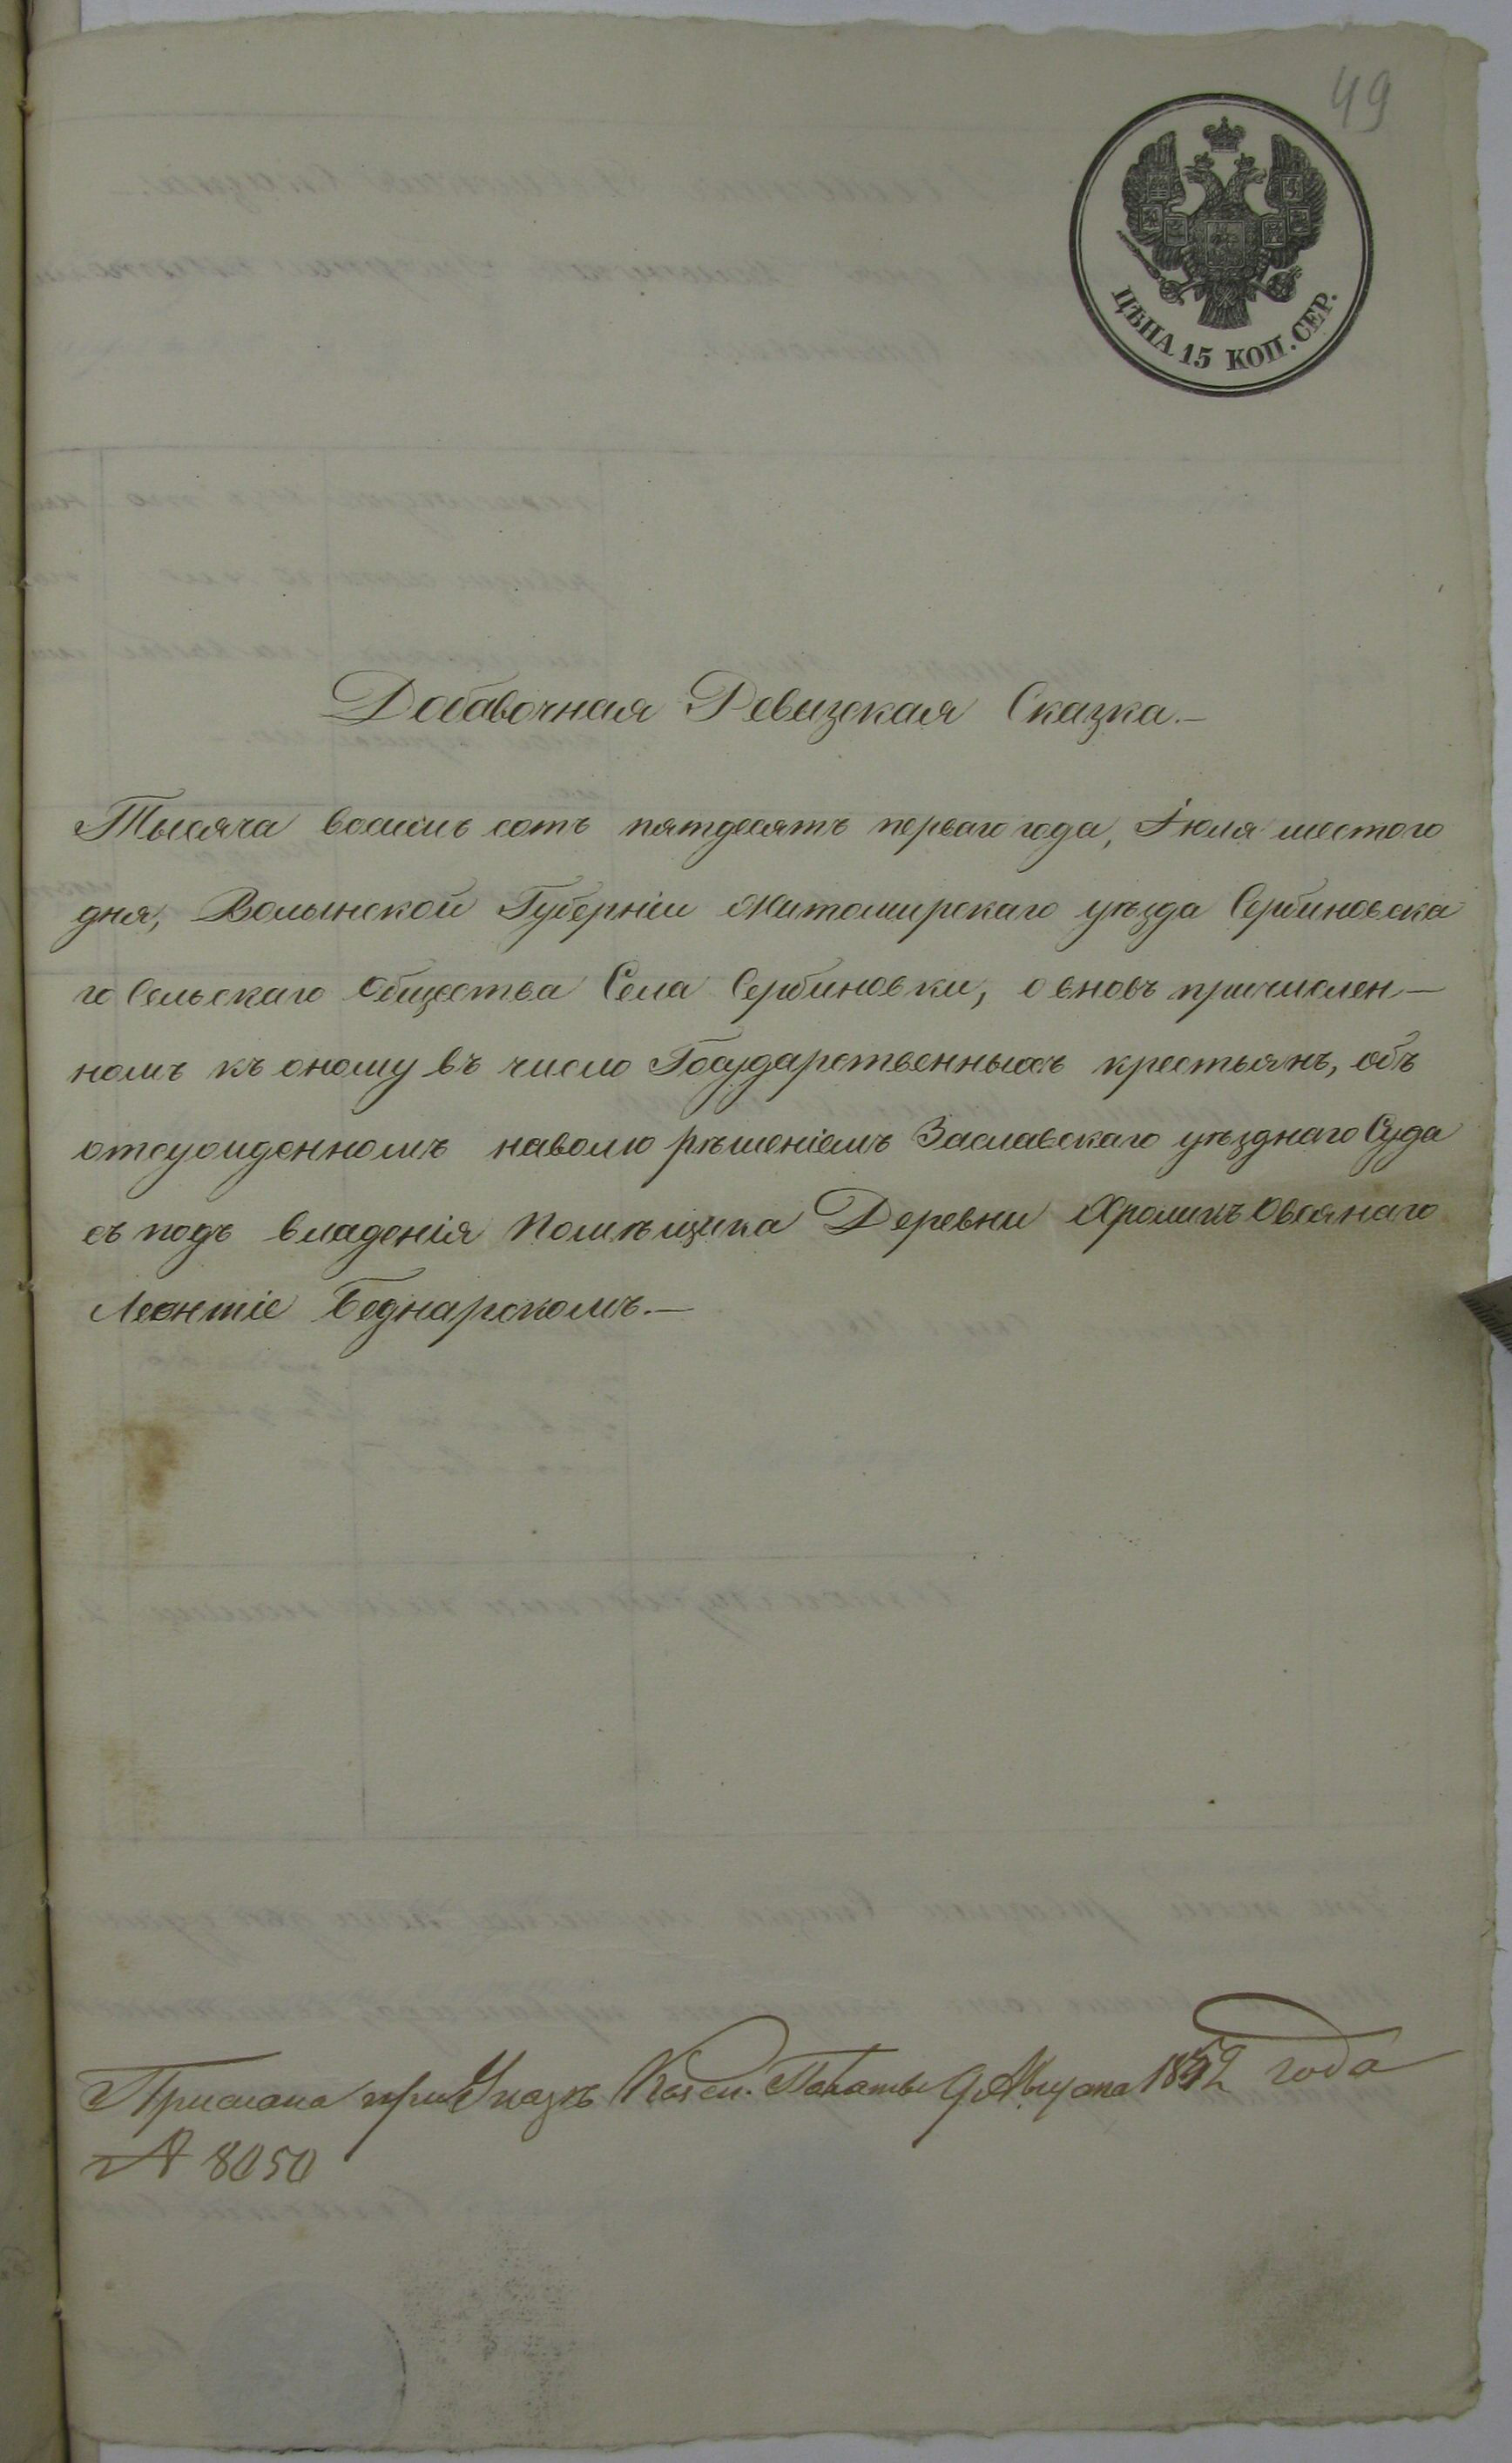 49
ЦѢНА 15 КОП. СЕР.
Добавочная Ревизская Сказка.—
Тысяча восемь сотъ пятдесятъ перваго года, Іюля шестого
дня, Волынской Губерніи Житомирскаго уѣзда Сербиновска
го Сельскаго Общества Села Сербиновки, о вновь причислен—
номъ къ оному въ число Государственныхъ крестьянъ, объ
отсужденномъ наволю рѣшеніемъ Заславскаго уѣзднаго Суда
съ подъ владенія Помѣщика Деревни Хролинъ Овсянаго
Леонтіе Беднарскомъ.—
Прислана при Указѣ Казен. Палаты 9 Августа 1852 года
№ 8050